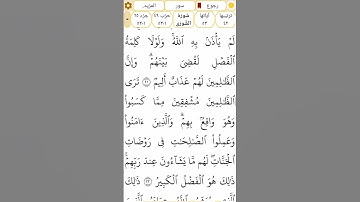 رجوع سور المزيد..
ترتيبها آياتها سورة حزب ٤٩ جزء ٢٥
٤٢ ٥٣ الشورى
لَمْ يَأْذَنۢ بِهِ ٱللَّهُۚ وَلَوْلَا كَلِمَةُ
ٱلْفَصْلِ لَقُضِىَ بَيْنَهُمْۗ وَإِنَّ
ٱلظَّٰلِمِينَ لَهُمْ عَذَابٌ أَلِيمٌ ٢١ تَرَى
ٱلظَّٰلِمِينَ مُشْفِقِينَ مِمَّا كَسَبُوا۟
وَهُوَ وَاقِعٌۢ بِهِمْۗ وَٱلَّذِينَ ءَامَنُوا۟
وَعَمِلُوا۟ ٱلصَّٰلِحَٰتِ فِى رَوْضَاتِ
ٱلْجَنَّاتِۖ لَهُم مَّا يَشَآءُونَ عِندَ رَبِّهِمْۚ
ذَٰلِكَ هُوَ ٱلْفَضْلُ ٱلْكَبِيرُ ٢٢ ذَٰلِكَ